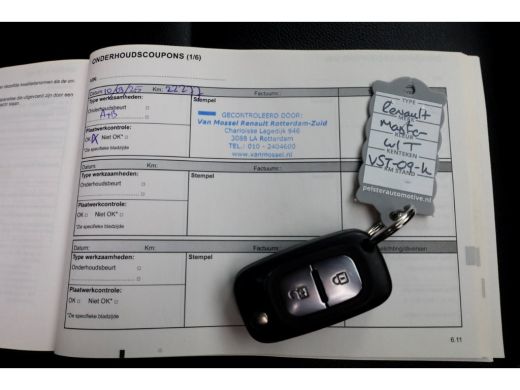 ONDERHOUDSCOUPONS (1/6)
VIN:
Datum: Km: 22277 Factuurnr.:
Type werkzaamheden:
Stempel
Onderhoudsbeurt
A+B
GECONTROLEERD DOOR:
Van Mossel Renault Rotterdam-Zuid
Charloisse Lagedijk 946
3088 LA Rotterdam
TEL.: 010 - 2404600
www.vanmossel.nl
Plaatwerkcontrole:
OK Niet OK*
*Zie specifieke bladzijde
Datum: Km: Factuurnr.:
Type werkzaamheden:
Stempel
Onderhoudsbeurt
Plaatwerkcontrole:
OK Niet OK*
*Zie specifieke bladzijde
Datum: Km: Factuurnr.:
Type werkzaamheden:
Stempel
Onderhoudsbeurt
Plaatwerkcontrole:
OK Niet OK*
*Zie specifieke bladzijde
6.11
TYPE
Renault
Master
KLEUR
WIT
KENTEKEN
VST-09-K
KM STAND
pelsterautomotive.nl